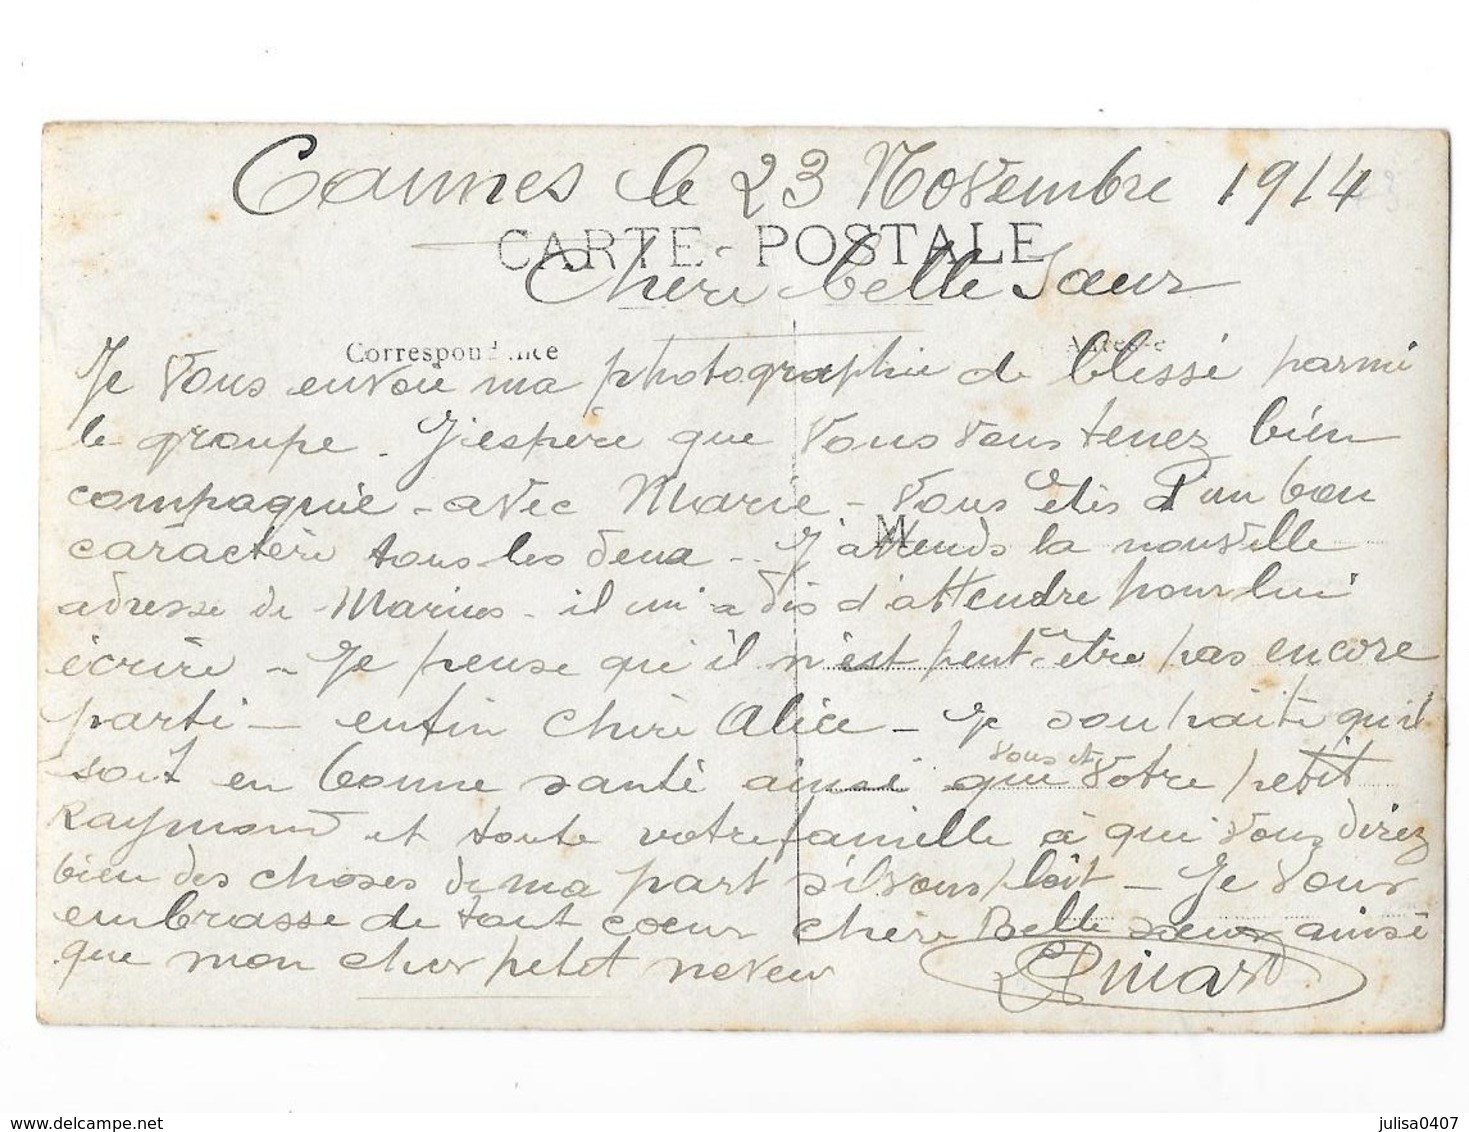 Cannes le 23 Novembre 1914
CARTE-POSTALE
Chère belle Sœur
Correspondance
Adresse
Je vous envoie ma photographie de blessé parmi
le groupe. J'espère que vous vous tenez bien
compagnie - avec Marie - vous êtes d'un bon
caractère tous les deux - J'attends la nouvelle
adresse de - Marius - il m'a dis d'attendre pour lui
écrire - Je pense qu'il n'est peut-être pas encore
parti - enfin chère Alice - Je souhaite qu'il
soit en bonne santé ainsi que vous et votre petit
Raymond et toute votre famille à qui vous direz
bien des choses de ma part s'il vous plôit - Je vous
embrasse de tout coeur chère Belle sœur ainsi
que mon cher petit neveu
julisa0407